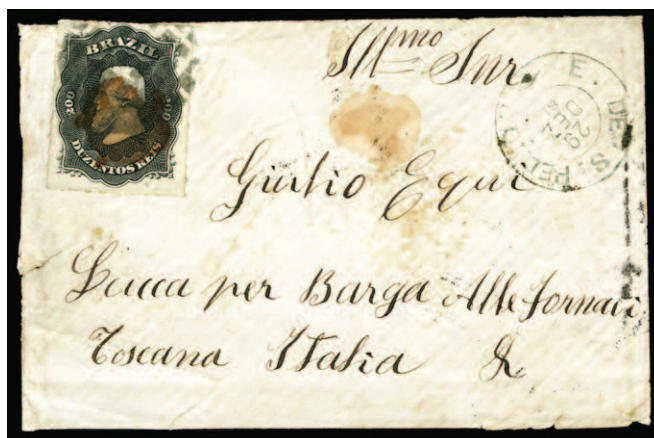 BRAZIL
200 200
DUZENTOS REIS
Ill.mo Snr.
E. DE S. PEDRO
29
DEZ
Giulio Equi
Lucca per Barga Alle fornaci
Toscana Italia